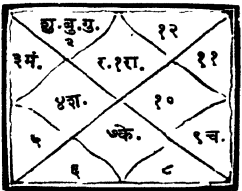 शु. बु. गु.
२
१२
३मं.
र. १रा.
११
४श.
१०
५
७के.
९च.
६
८